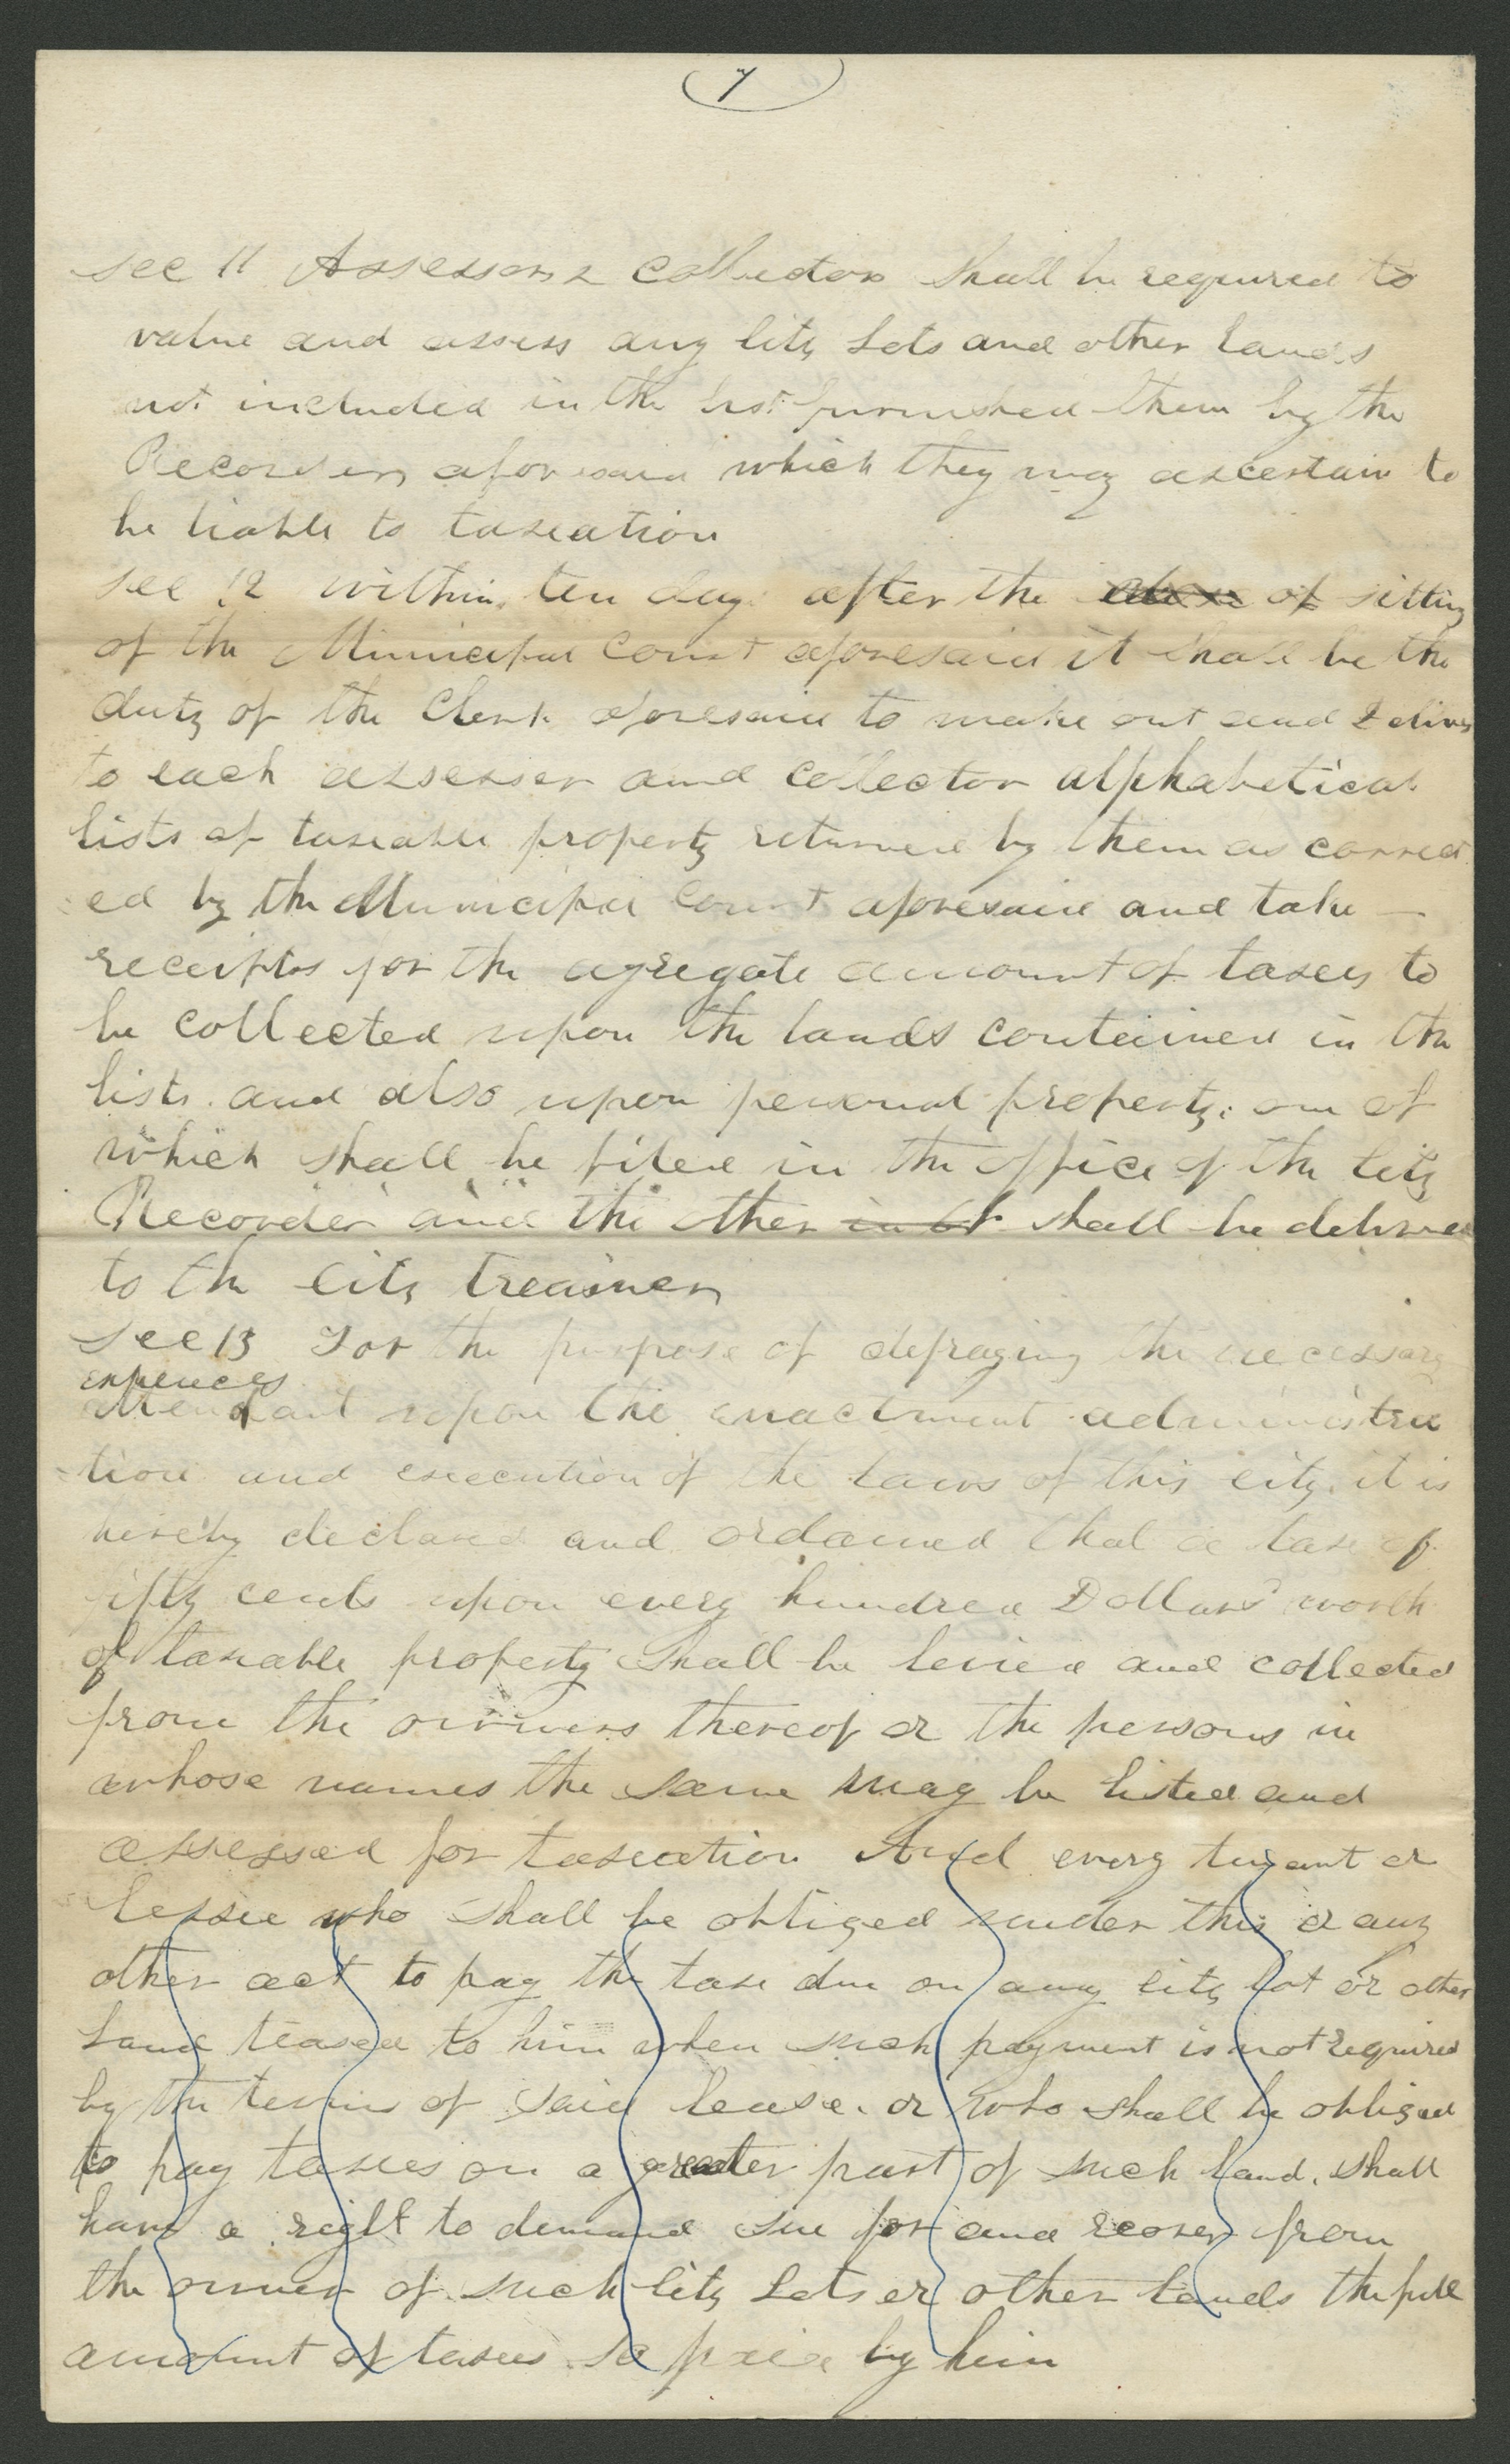 7
Sec 11 Assessors & collectors shall be required to
value and assess any city Lots and other lands
not included in the list furnished them by the
Recorder, aforesaid which they may ascertain to
be liable to taxeation
Sec 12 within ten days after the of sitting
of the Municipal Court aforesaid it shall be the
duty of the Clerk aforesaid to make out and deliver
to each assesser and collector alphabetical
lists of taxeable property returned by them as correct
ed by the Municipal Court aforesaid and take
receipts for the agregate amount of taxes to
be collected upon the lands contained in the
lists. and also upon personal property. one of
which shall be filed in the office of the city
Recorder and the other shall be delivered
to the city treasurer
Sec 13 For the purpose of defraying the necessary
expences
attendant upon the enactment administra
tion and execution of the laws of this city. it is
hereby declared and ordained that a taxe of
fifty cents upon every hundred Dollars worth
of taxable property shall be levied and collected
from the owners thereof or the persons in
whose names the same may be listed and
assessed for taxeation And every tenant or
lessee who shall be obliged under this or any
other act to pay the taxe due on any city lot or other
Land leased to him when such payment is not required
by the terms of said lease. or who shall be obliged
to pay taxes on a greater part of such land. shall
have a right to demand sue for and recover from
the owner of such city Lots or other lands the full
amount of taxes so paid by him